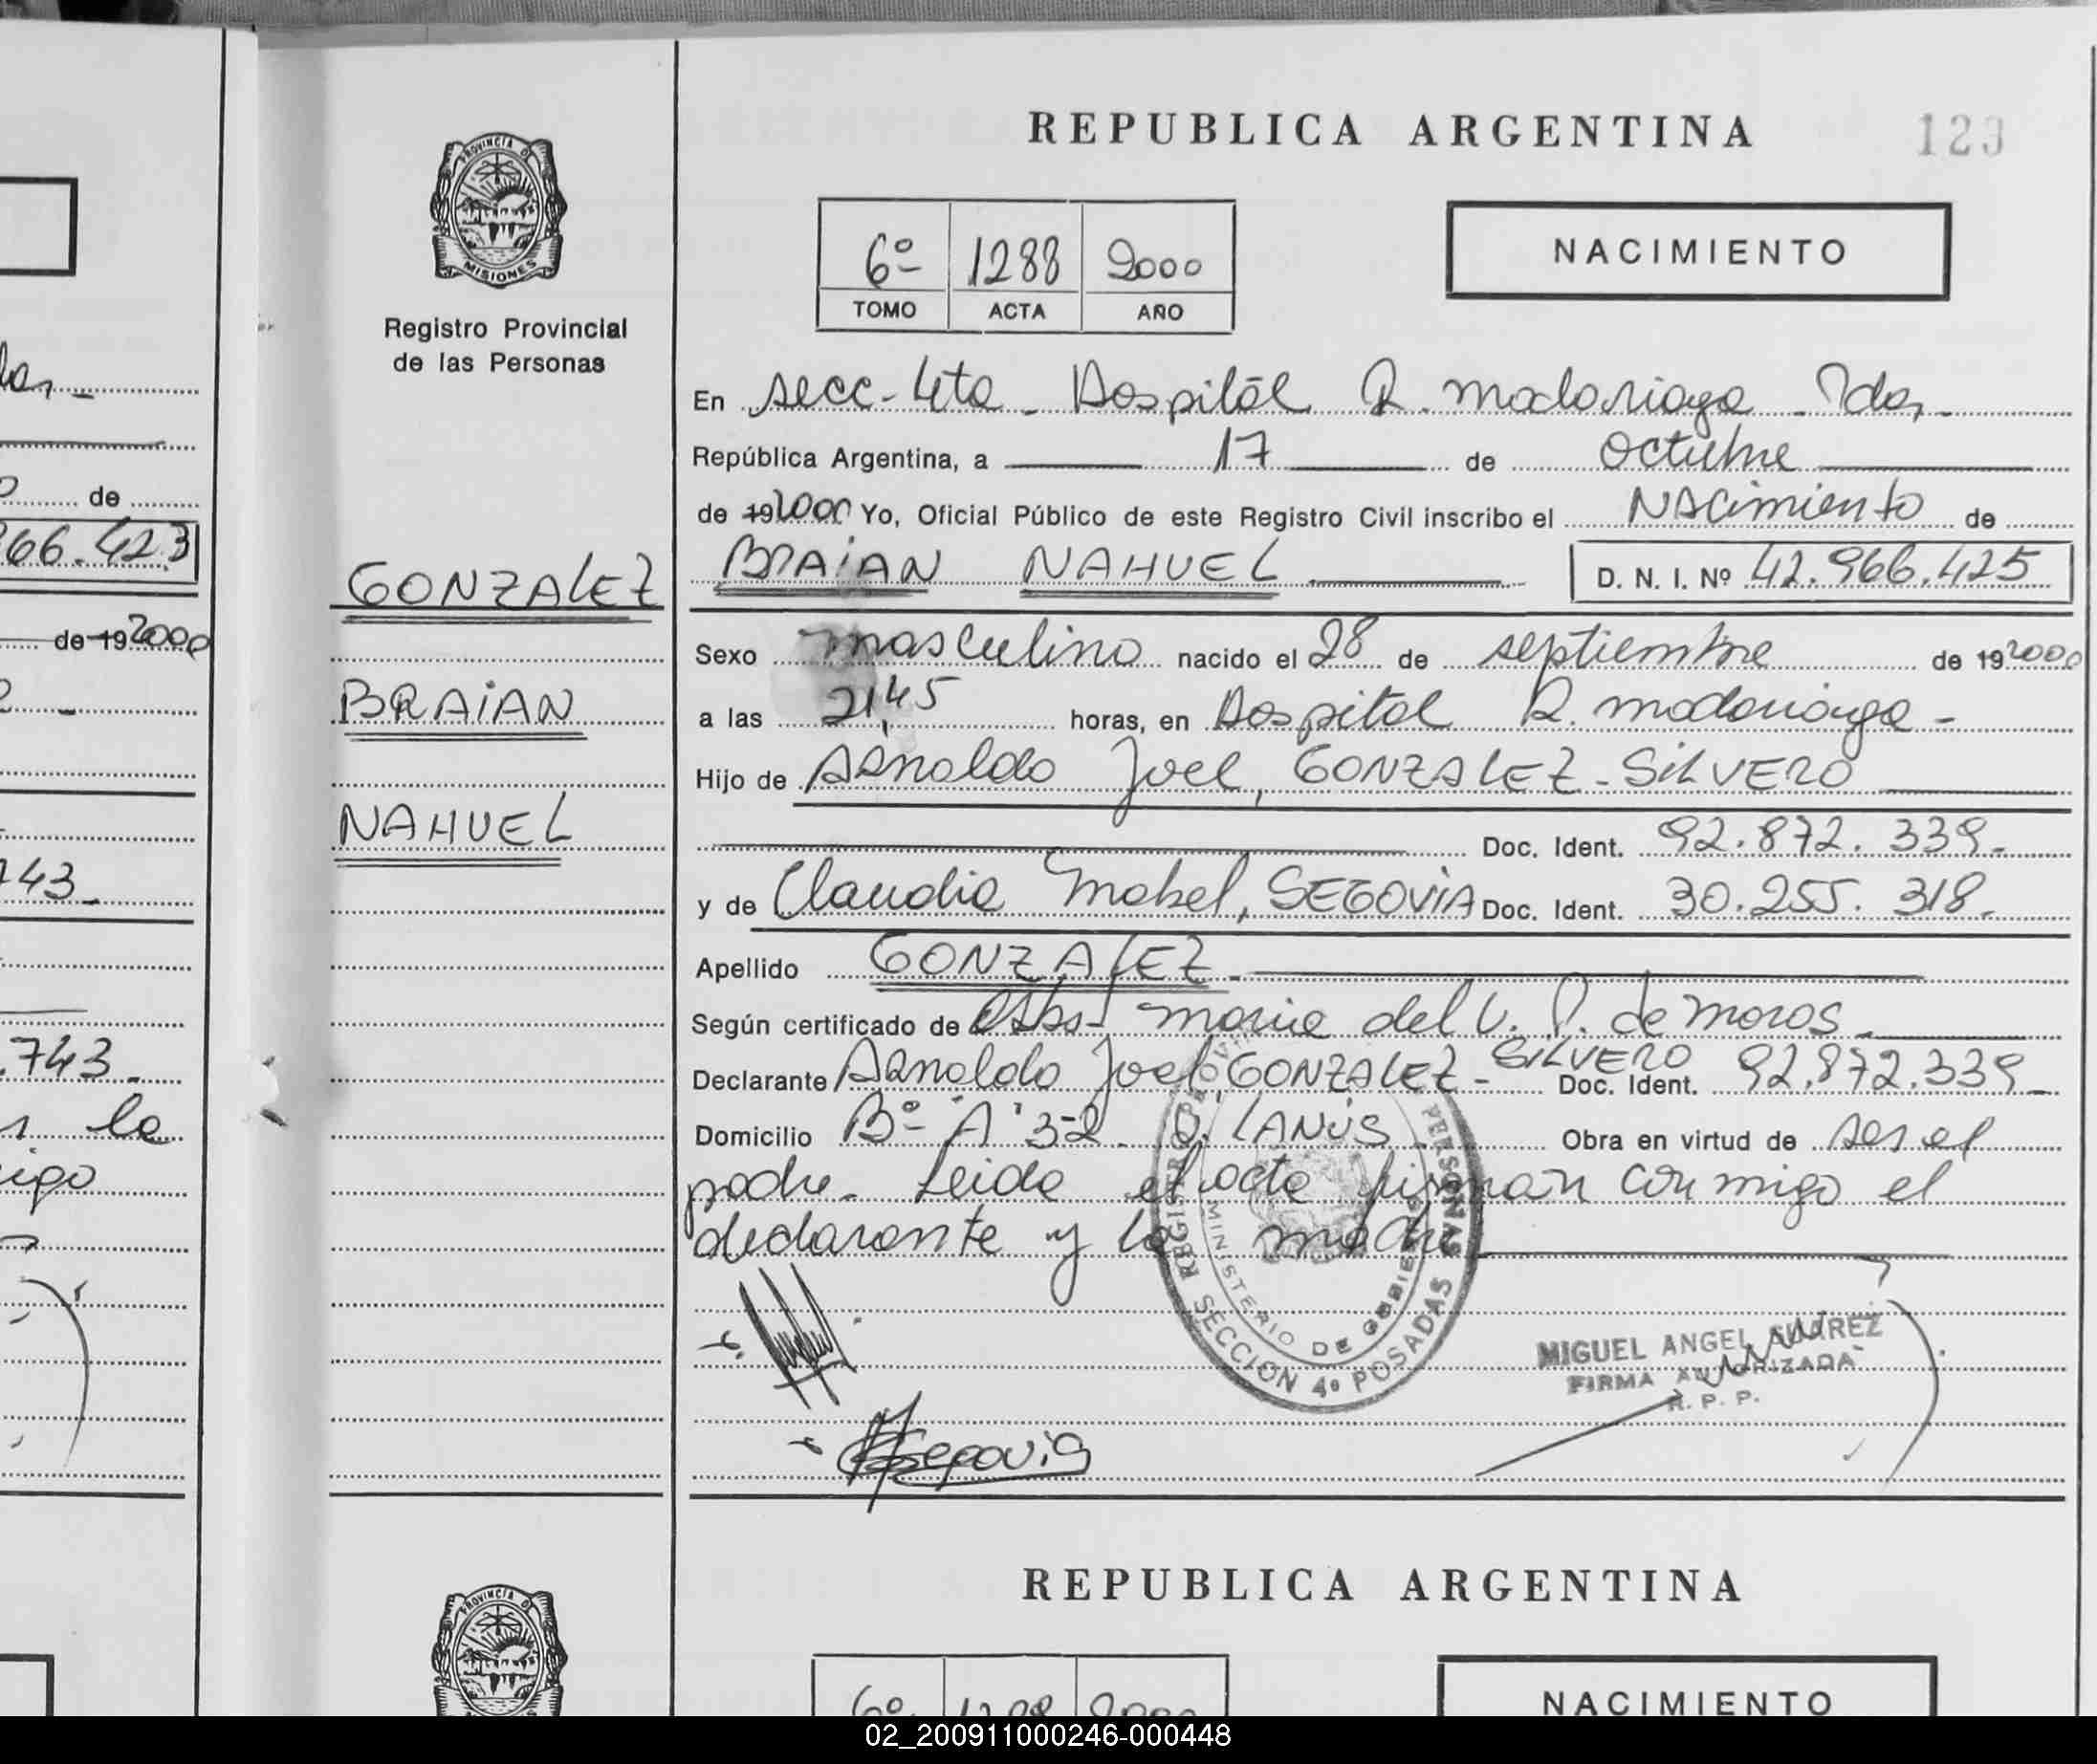 REPUBLICA ARGENTINA
123
PROVINCIA DE
MISIONES
Registro Provincial
de las Personas
6º 1288 2000
TOMO ACTA AÑO
NACIMIENTO
En Secc. 4ta - Hospital R. Madariaga - Pdas.
República Argentina, a 17 de Octubre
de 192000 Yo, Oficial Público de este Registro Civil inscribo el Nacimiento de
BRAIAN NAHUEL D. N. I. Nº 42.966.425
GONZALEZ
BRAIAN
NAHUEL
Sexo masculino nacido el 28 de septiembre de 192000
a las 21,45 horas, en Hospital R. Madariaga -
Hijo de Arnoldo Joel, GONZALEZ - SILVERO
Doc. Ident. 92.872.339.
y de Claudia Mabel, SEGOVIA Doc. Ident. 30.255.318.
Apellido GONZALEZ
Según certificado de Obst. Maria del C. P. de Moros
Declarante Arnoldo Joel, GONZALEZ - SILVERO Doc. Ident. 92.872.339
Domicilio Bº "A" 3-2. I. LANÚS Obra en virtud de ser el
padre. Leida el acta firman conmigo el
declarante y la madre
REGISTRO PERSONAS
MINISTERIO DE GOBIERNO
SECCION 4º POSADAS
MIGUEL ANGEL SUAREZ
FIRMA AUTORIZADA
R. P. P.
Segovia
66.423
de
de 192000
43
.743
la
REPUBLICA ARGENTINA
PROVINCIA DE
6º
NACIMIENTO
02_200911000246-000448